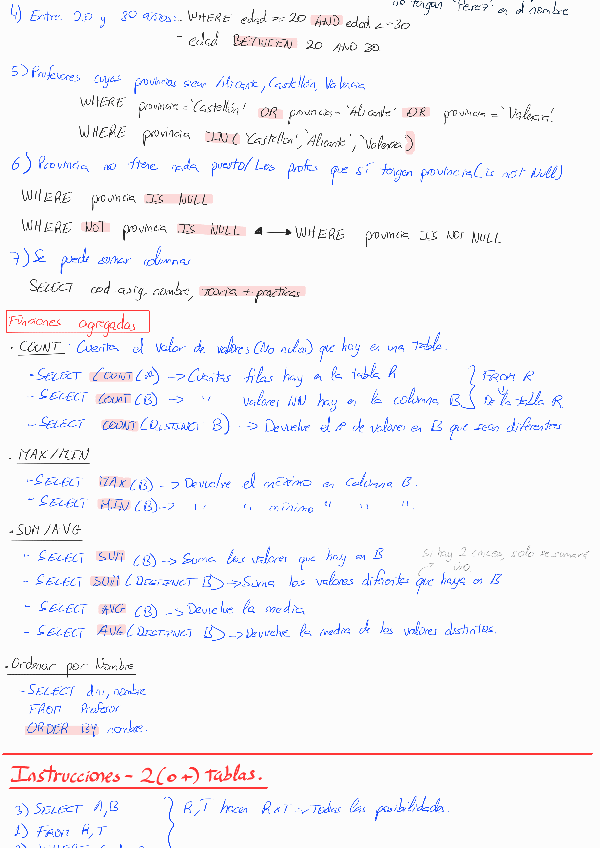 no tengan 'Perez' en el nombre
4) Entre 20 y 30 años:. WHERE edad >= 20 AND edad <= 30
- edad BETWEEN 20 AND 30
5) Profesores cuyas provincias sean Alicante, Castellón, Valencia
WHERE provincia = 'Castellón' OR provincia = 'Alicante' OR provincia = 'Valencia'.
WHERE provincia IN ('Castellón', 'Alicante', 'Valencia')
6) Provincia no tiene nada puesto / Los profes que sí tengan provincia (is not Null)
WHERE provincia IS NULL
WHERE NOT provincia IS NULL ◄—► WHERE provincia IS NOT NULL
7) Se puede sumar columnas
SELECT cod asig, nombre, teoria + practicas
Funciones agregadas
• COUNT: Cuenta el valor de valores (No nulos) que hay en una tabla.
- SELECT COUNT (*) -> Cuantas filas hay en la tabla R } FROM R
- SELECT COUNT (B) -> " valores NN hay en la columna B. De la tabla R.
- SELECT COUNT (DISTINCT B). -> Devuelve el nº de valores en B que sean diferentes
• MAX/MIN
- SELECT MAX (B). -> Devuelve el máximo en columna B.
- SELECT MIN (B). -> " " mínimo " " ".
• SUM/AVG
- SELECT SUM (B) -> Suma los valores que hay en B
Si hay 2 iguales, solo se sumará
uno
- SELECT SUM (DISTINCT B) -> Suma los valores diferentes que haya en B
- SELECT AVG (B) -> Devuelve la media
- SELECT AVG (DISTINCT B) -> Devuelve la media de los valores distintos.
• Ordenar por Nombre
- SELECT dni, nombre
FROM Profesor
ORDER BY nombre.
Instrucciones - 2 (o +) tablas.
3) SELECT A, B } R, T hacen R x T -> Todas las posibilidades.
1) FROM R, T